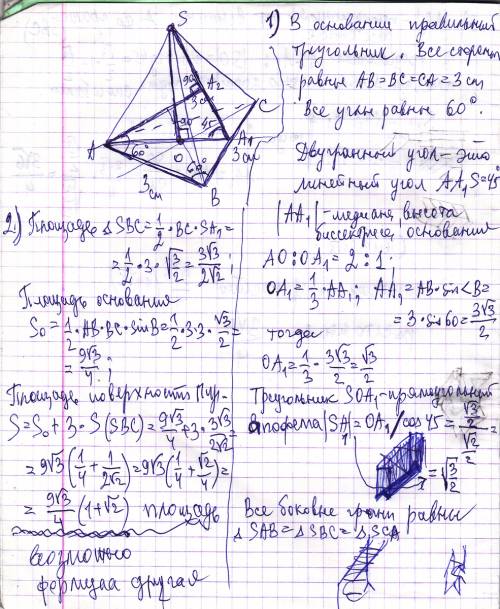 S
90°
A₂
3 см
C
90
45°
A
60°
O
A₁
60°
3 см
B
3 см
1) В основании правильный
треугольник. Все стороны
равные AB=BC=CA=3 см
Все углы равные 60°.
Двугранный угол - это
линейный угол AA₁S=45°
|AA₁| - медиана, высота
биссектриса, основания
AO:OA₁=2:1;
OA₁=1/3·AA₁; AA₁=AB·sin<B=
=3·sin60=3√3/2
тогда
OA₁=1/3·3√3/2=√3/2
Треугольник SOA₁-прямоугольный
Апофема |SA₁|=OA₁/cos45=(√3/2)/(√2/2)=
=√(3/2)
Все боковые грани равны
△SAB=△SBC=△SCA
2.) Площадь △SBC=1/2·BC·SA₁=
=1/2·3·√3/√2=3√3/2√2;
Площадь основания
S₀=1/2·AB·BC·sinB=1/2·3·3·√3/2=
=9√3/4;
Площадь поверхности Пир-
S=S₀+3·S(SBC)=9√3/4+3·3√3/2√2=
=9√3(1/4+1/2√2)=9√3(1/4+√2/4)=
=9√3/4(1+√2) площадь
возможно
формула другая